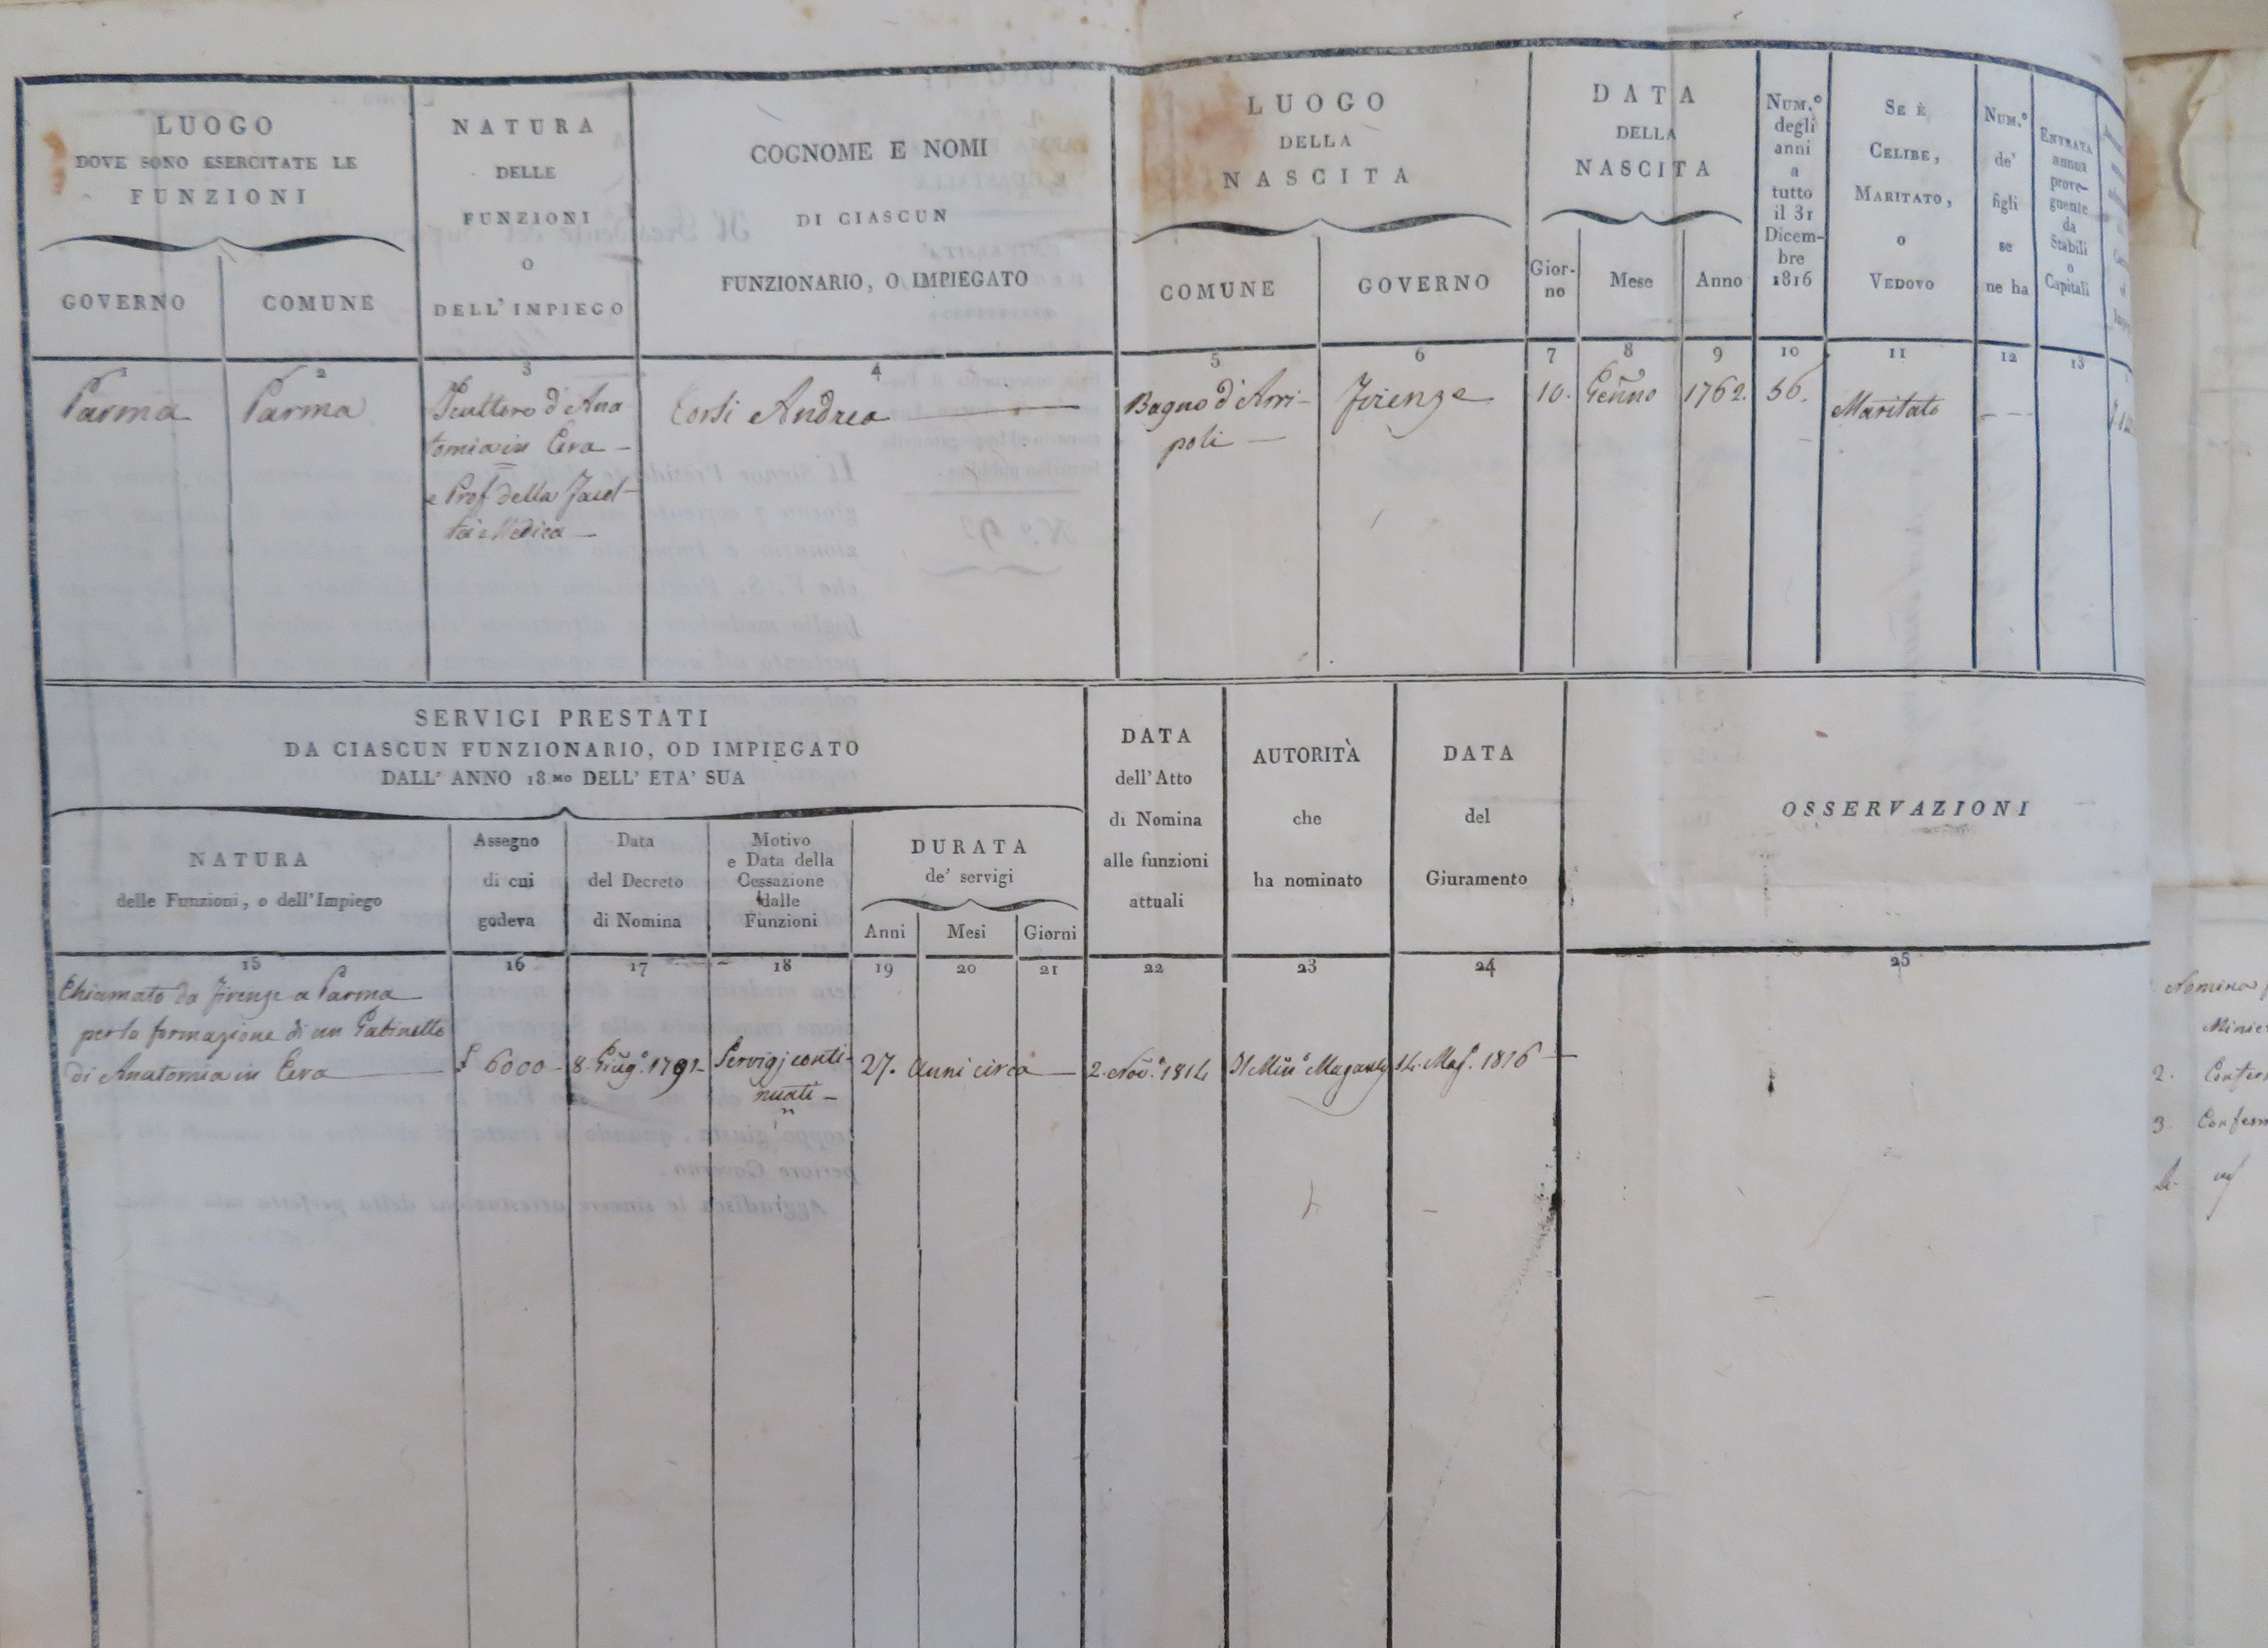 LUOGO
DOVE SONO ESERCITATE LE
FUNZIONI
GOVERNO
COMUNE
NATURA
DELLE
FUNZIONI
O
DELL' IMPIEGO
COGNOME E NOMI
DI CIASCUN
FUNZIONARIO, O IMPIEGATO
LUOGO
DELLA
NASCITA
COMUNE
GOVERNO
DATA
DELLA
NASCITA
Gior-
no
Mese
Anno
NUM.º
degli
anni
a
tutto
il 31
Dicem-
bre
1816
SE È
CELIBE,
MARITATO,
O
VEDOVO
NUM.º
de'
figli
se
ne ha
ENTRATA
annua
prove-
gnente
da
Stabili
o
Capitali
1
2
3
4
5
6
7
8
9
10
11
12
13
Parma
Parma
Scultore d'Ana
tomia in Cera
e Prof. della Facol-
tà Medica
Corsi Andrea
Bagno d'Arri-
poli
Firenze
10.
Genno
1762.
56.
Maritato
SERVIGI PRESTATI
DA CIASCUN FUNZIONARIO, OD IMPIEGATO
DALL' ANNO 18.MO DELL' ETA' SUA
NATURA
delle Funzioni, o dell'Impiego
Assegno
di cui
godeva
Data
del Decreto
di Nomina
Motivo
e Data della
Cessazione
dalle
Funzioni
DURATA
de' servigi
Anni
Mesi
Giorni
DATA
dell' Atto
di Nomina
alle funzioni
attuali
AUTORITÀ
che
ha nominato
DATA
del
Giuramento
OSSERVAZIONI
15
16
17
18
19
20
21
22
23
24
25
Chiamato da Firenze a Parma
per la formazione di un Gabinetto
di Anatomia in Cera
6000
8. Giug.º 1791
Servigj conti-
nuati
27. Anni circa
2. Nov.e 1814
Il Min.º Magawly
14. Mag.º 1816
Nomina
Minis
2.
3.